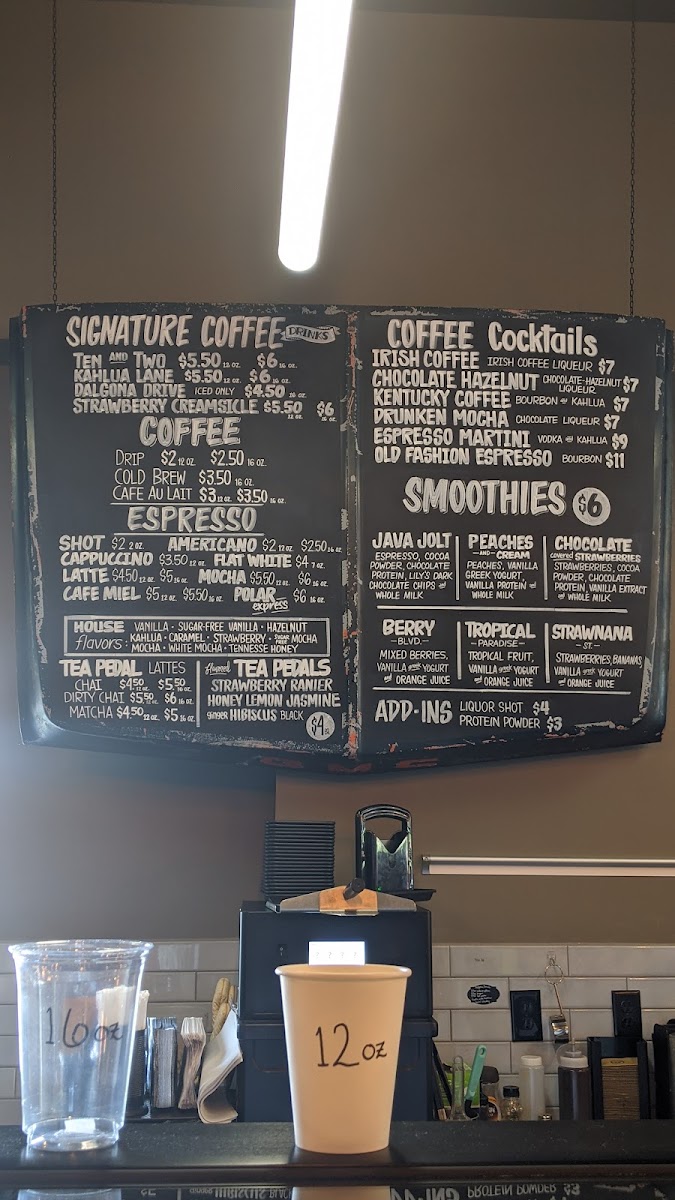 SIGNATURE COFFEE DRINKS
TEN AND TWO $5.50 12 OZ. $6 16 OZ.
KAHLUA LANE $5.50 12 OZ. $6 16 OZ.
DALGONA DRIVE ICED ONLY $4.50 16 OZ.
STRAWBERRY CREAMSICLE $5.50 12 OZ. $6 16 OZ.
COFFEE
DRIP $2 12 OZ. $2.50 16 OZ.
COLD BREW $3.50 16 OZ.
CAFE AU LAIT $3 12 OZ. $3.50 16 OZ.
ESPRESSO
SHOT $2 2 OZ. AMERICANO $2 12 OZ. $2.50 16 OZ.
CAPPUCCINO $3.50 12 OZ. FLAT WHITE $4 7 OZ.
LATTE $4.50 12 OZ. $5 16 OZ. MOCHA $5.50 12 OZ. $6 16 OZ.
CAFE MIEL $5 12 OZ. $5.50 16 OZ. POLAR express $6 16 OZ.
HOUSE flavors:
VANILLA • SUGAR-FREE VANILLA • HAZELNUT
KAHLUA • CARAMEL • STRAWBERRY • SUGAR FREE MOCHA
MOCHA • WHITE MOCHA • TENNESSE HONEY
TEA PEDAL LATTES
CHAI $4.50 12 OZ. $5.50 16 OZ.
DIRTY CHAI $5.50 12 OZ. $6 16 OZ.
MATCHA $4.50 12 OZ. $5 16 OZ.
flavored TEA PEDALS
STRAWBERRY RANIER
HONEY LEMON JASMINE
GINGER HIBISCUS BLACK
$4
COFFEE Cocktails
IRISH COFFEE IRISH COFFEE LIQUEUR $7
CHOCOLATE HAZELNUT CHOCOLATE-HAZELNUT LIQUEUR $7
KENTUCKY COFFEE BOURBON and KAHLUA $7
DRUNKEN MOCHA CHOCOLATE LIQUEUR $7
ESPRESSO MARTINI VODKA and KAHLUA $9
OLD FASHION ESPRESSO BOURBON $11
SMOOTHIES $6
JAVA JOLT
ESPRESSO, COCOA
POWDER, CHOCOLATE
PROTEIN, LILY'S DARK
CHOCOLATE CHIPS and
WHOLE MILK
PEACHES
AND
CREAM
PEACHES, VANILLA
GREEK YOGURT,
VANILLA PROTEIN and
WHOLE MILK
CHOCOLATE
covered STRAWBERRIES
STRAWBERRIES, COCOA
POWDER, CHOCOLATE
PROTEIN, VANILLA EXTRACT
and WHOLE MILK
BERRY
BLVD.
MIXED BERRIES,
VANILLA greek YOGURT
and ORANGE JUICE
TROPICAL
PARADISE
TROPICAL FRUIT,
VANILLA greek YOGURT
and ORANGE JUICE
STRAWNANA
ST.
STRAWBERRIES, BANANAS
VANILLA greek YOGURT
and ORANGE JUICE
ADD-INS
LIQUOR SHOT $4
PROTEIN POWDER $3
16 oz
12 oz